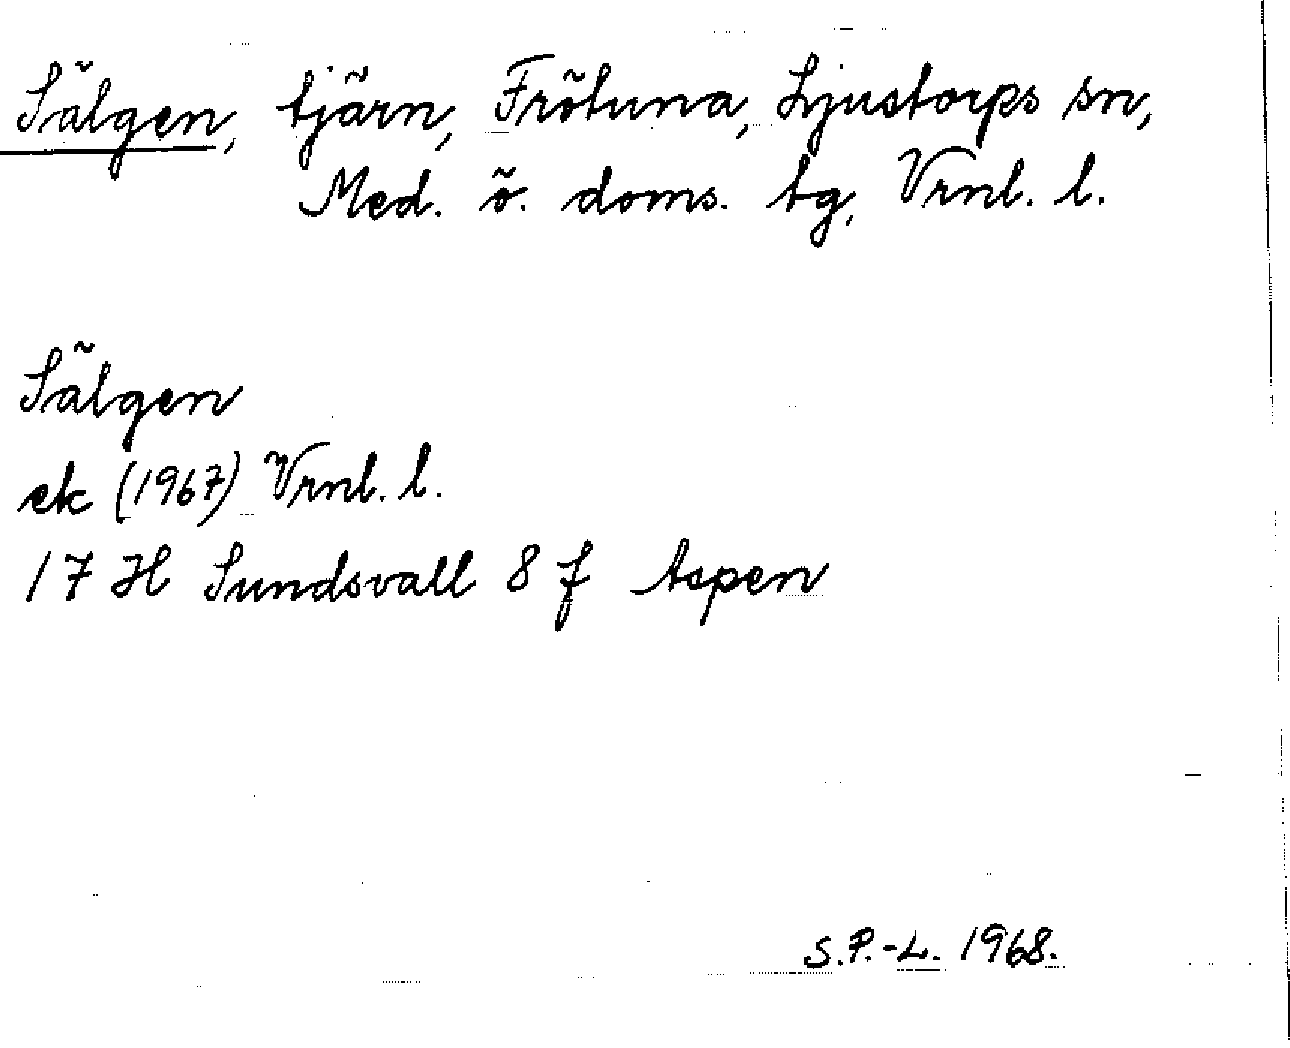 Sälgen, tjärn, Frötuna, Ljustorps sn,
Med. ö. doms. tg, Vrnl. l.
Sälgen
ek (1967) Vrnl. l.
17 H Sundsvall 8 f Aspen
S.P.-L. 1968.